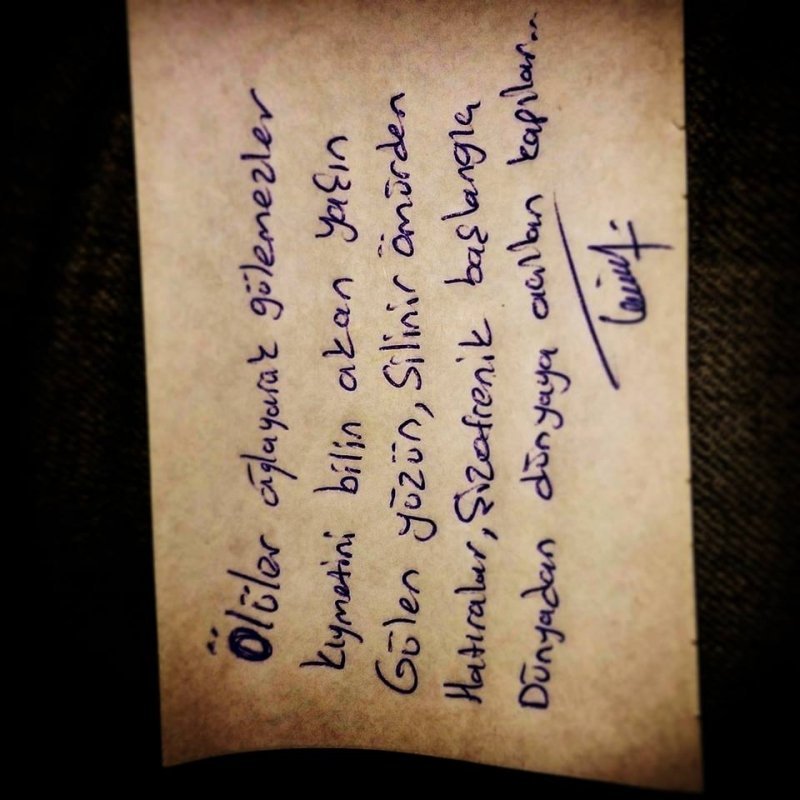 Ölüler ağlayarak gülemezler
kıymetini bilin akan yaşın
Gülen yüzün, Silinir ömürden
Hatıralar, Şizofrenik başlangla
Dünyadan dünyaya açılan kapılar...